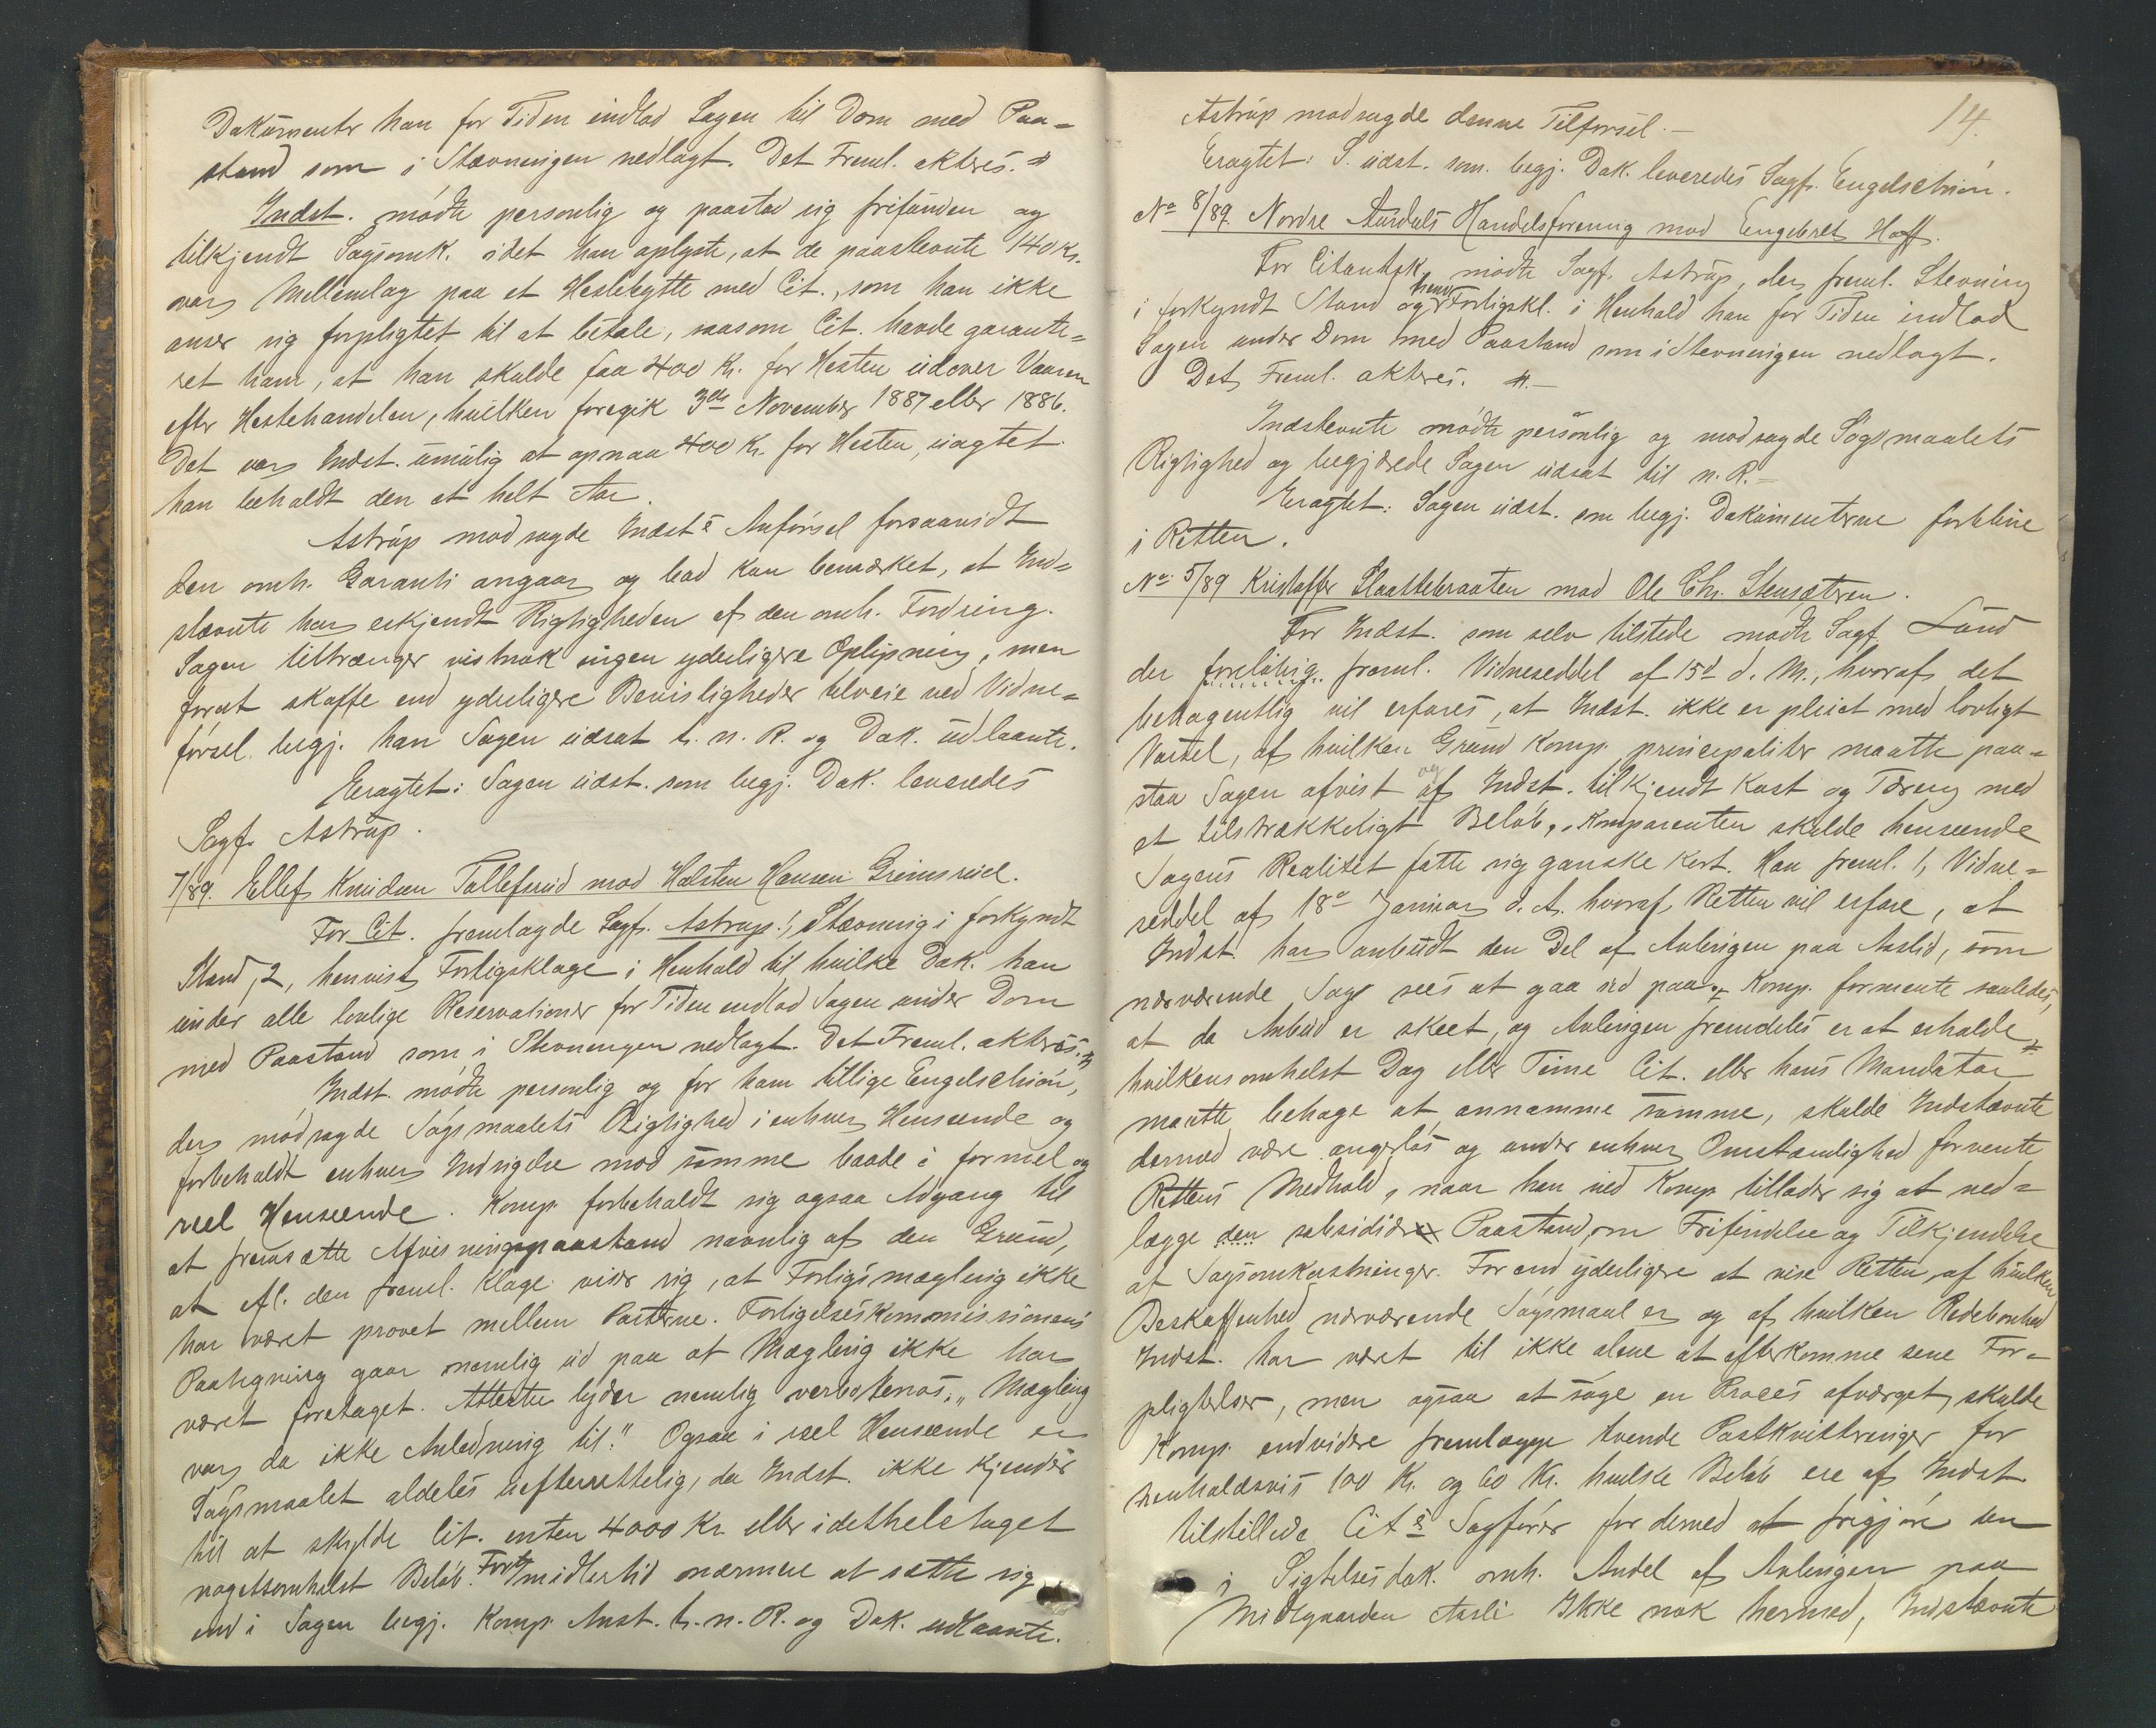 Dokumenter han for Tiden indlod Sagen til Dom med Paa=
stand som i Stævningen nedlagt. Det Freml. akteres. #
Indst. mødte personlig og paastod sig frifunden og
tilkjendt Sagsomk. idet han oplyste, at de paastevnte 140 Kr.
var Mellemlag paa et Hestebytte med Cit., som han ikke
anser sig forpligtet til at betale, saasom Cit. havde garante=
ret ham, at han skulde faa 400 Kr. for Hesten udover Vaaren
efter Hestehandelen, hvilken foregik 3die November 1887 eller 1886.
Det var Indst. umulig at opnaa 400 Kr. for Hesten, uagtet
han beholdt den et helt Aar.
Astrup modsagde Indsts Anførsel forsaavidt
den omh. Garanti angaar og bad kun bemærket, at Ind=
stævnte har erkjendt Rigtigheden af den omh. Fordring.
Sagen tiltrænger vistnok ingen yderligere Oplysning, men
forat skaffe end yderligere Bevisligheder tilveie ved Vidne=
førsel begj. han Sagen udsat t. n. R. og Dok. udlaante.
Eragtet: Sagen udst. som begj. Dok. leveredes
Sagf. Astrup.
7/89. Ellef Knudsen Tollefsrud mod Halsten Hansen Grimsrud.
For Cit. fremlagde Sagf. Astrup 1, Stævning i forkyndt
Stand, 2, henvist Forligsklage i Henhold til hvilke Dok. han
under alle lovlige Reservationer for Tiden indlod Sagen under Dom
med Paastand som i Stevningen nedlagt. Det Freml. akteres. #
Indst. mødte personlig og for ham tillige Engelschiøn,
der modsagde Søgsmaalets Rigtighed i enhver Henseende og
forbeholdt enhver Indsigelse mod samme baade i formel og
reel Henseende. Komp. forbeholdt sig ogsaa Adgang til
at fremsætte Afvisningspaastand navnlig af den Grund,
at efl. den freml. Klage viser sig, at Forligsmægling ikke
har været prøvet mellem Parterne. Forligelseskommissionens
Paategning gaar nemlig ud paa at Mægling ikke har
været foretaget. Attesten lyder nemlig verbotenus: "Mægling
var da ikke Anledning til." Ogsaa i reel Henseende er
Søgsmaalet aldeles uefterrettelig, da Indst. ikke kjender
til at skylde Cit. enten 4000 Kr. eller idetheletaget
nogetsomhelst Beløb. Forat imidlertid nærmere at sætte sig
ind i Sagen begj. Komp. Anst. t. n. R. og Dok. udlaante.
14.
Astrup modsagde denne Tilførsel. —
Eragtet: S. udst. som begj. Dok. leveredes Sagf. Engelschiøn.
No 8/89. Nordre Aurdals Handelsforening mod Engebret Hoff.
For Citantsk. mødte Sagf. Astrup, der freml. Stevning
i forkyndt Stand og henv. Forligskl. i Henhold han for Tiden indlod
Sagen under Dom med Paastand som i Stevningen nedlagt.
Det Freml. akteres. #. —
Indstevnte mødte personlig og modsagde Søgsmaalets
Rigtighed og begjærede Sagen udsat til n. R. —
Eragtet: Sagen udst. som begj. Dokumenterne forblive
i Retten.
No: 5/89 Kristoffer Slaattebraaten mod Ole Chr. Stensætren.
For Indst. som selv tilstede mødte Sagf. Lund
der foreløbig freml. Vidneseddel af 15d d. M., hvoraf det
behagentlig vil erfares, at Indst. ikke er pleiet med lovligt
Varsel, af hvilken Grund Komp. principaliter maatte paa=
staa Sagen afvist og af Indst. tilkjendt Kost og Tæring med
et tilstrækkeligt Beløb. Komparenten skulde henseende
Sagens Realitet fatte sig ganske kort. Han freml. 1, Vidne=
seddel af 18de Januar d. A. hvoraf Retten vil erfare, at
Indst. har anbudt den Del af Avlingen paa Aaslid, som
nærværende Sag sees at gaa ud paa. Komp. formente saaledes,
at da Anbud er skeet, og Avlingen fremdeles er at erholde
hvilkensomhelst Dag eller Time Cit. eller hans Mandatar
maatte behage at annamme samme, skulde Indstævnte
dermed være angerløs og under enhver Omstændighed forvente
Rettens Medhold, naar han ved Komp. tillader sig at ned=
lægge den subsidiære Paastand om Frifindelse og Tilkjendelse
af Sagsomkostninger. For end yderligere at vise Retten af hvilken
Beskaffenhed nærværende Søgsmaal er og af hvilken Redebonhed
Indst. har været til ikke alene at efterkomme sine For=
pligtelser, men ogsaa at søge en Proces afværget, skulde
Komp. endvidere fremlægge tvende Postkvitteringer for
henholdsvis 100 Kr. og 60 Kr. hvilke Beløb ere af Indst.
tilstillede Cits Sagfører for dermed at frigjøre den
i Sigtelsesdok. omh. Andel af Avlingen paa
Midtgaarden Aasli. Ikke nok hermed, Indstævnte